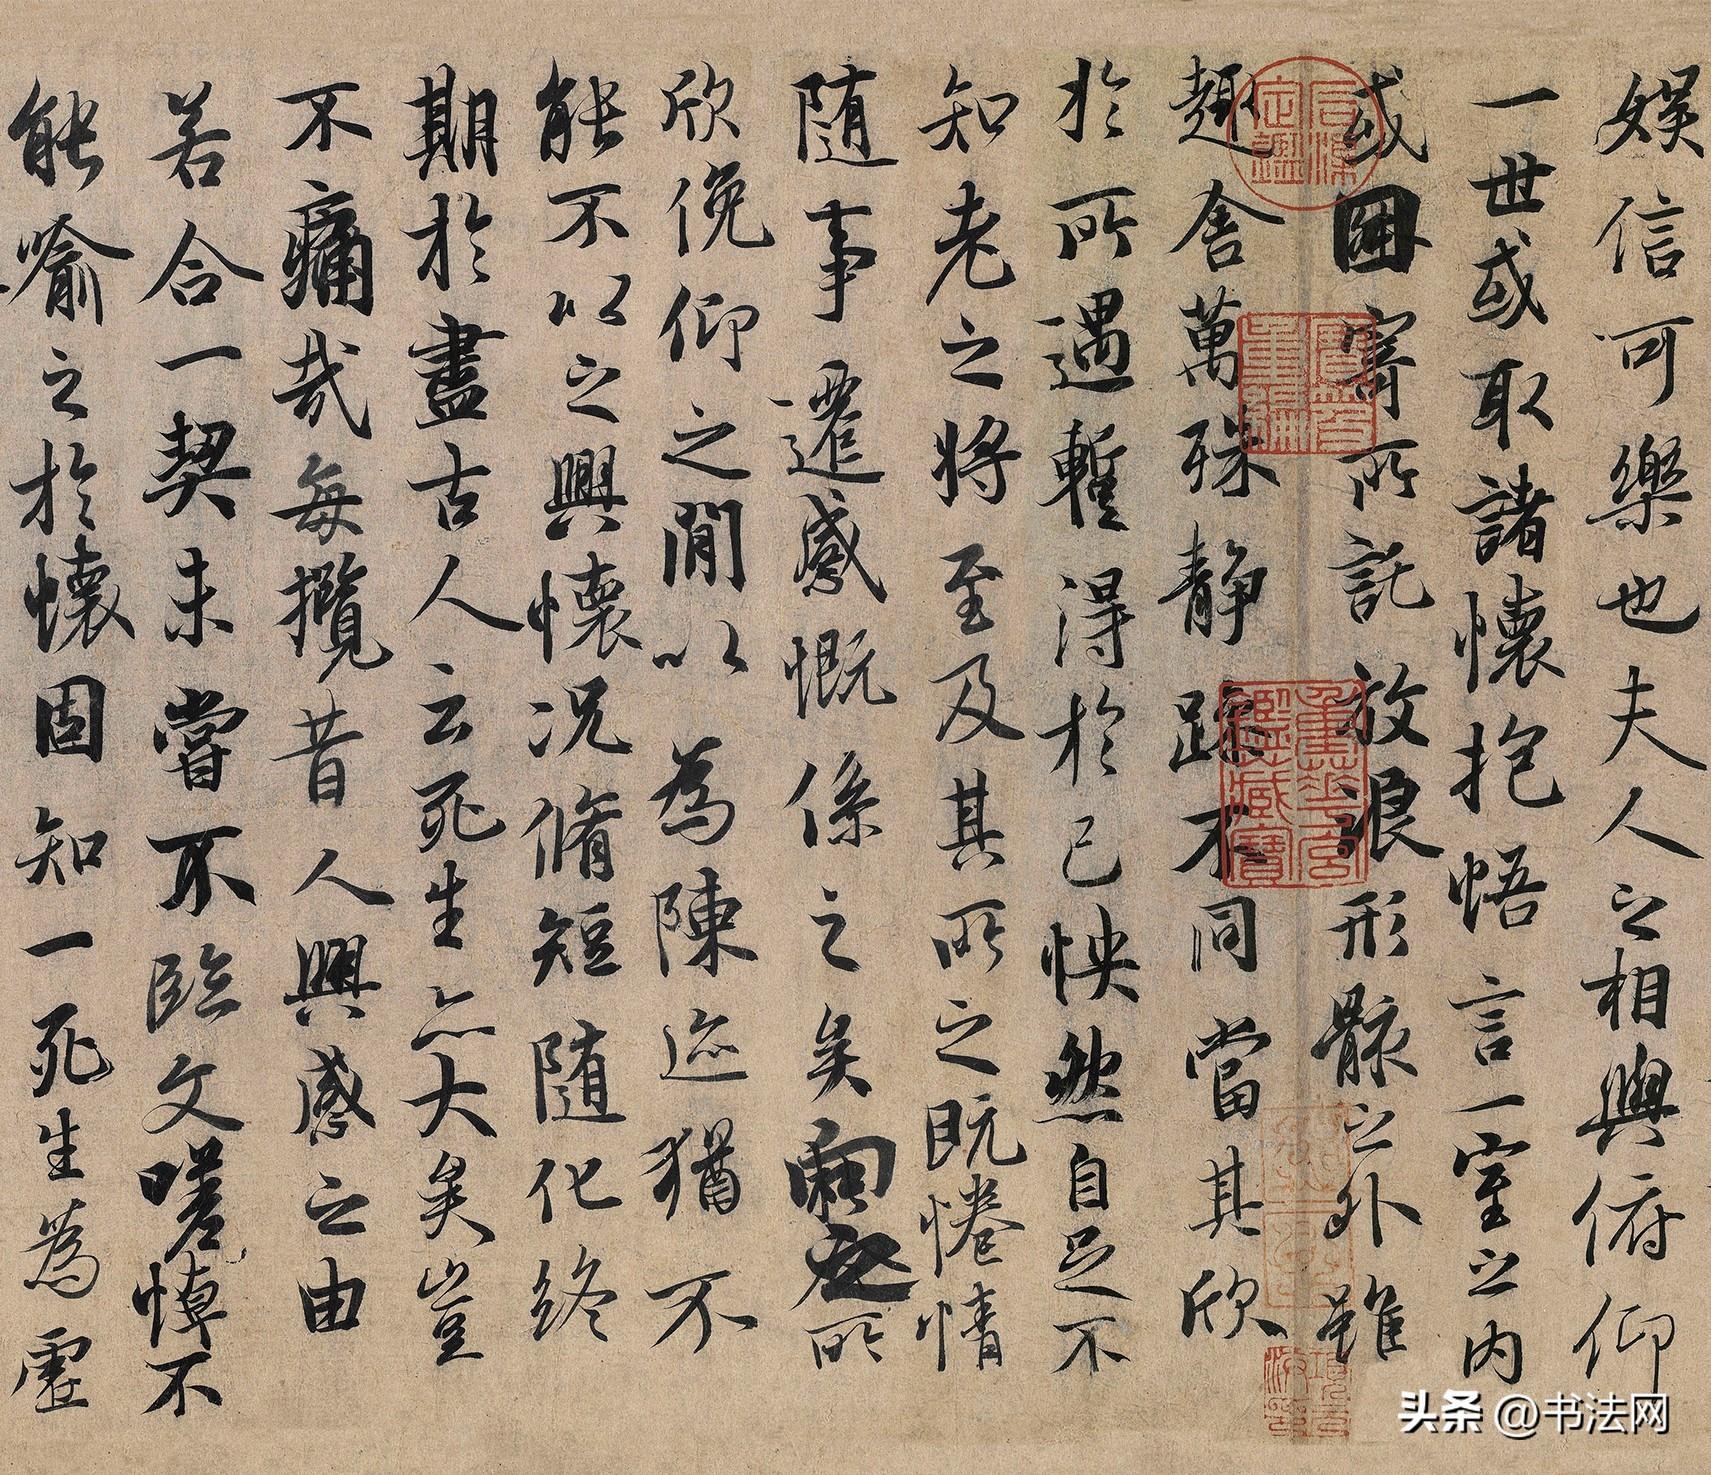 娛信可樂也夫人之相與俯仰
一世或取諸懷抱悟言一室之内
或因寄所託放浪形骸之外雖
趣舍萬殊静躁不同當其欣
於所遇蹔得於己怏然自足不
知老之將至及其所之既惓情
随事遷感慨係之矣向之所
欣俛仰之閒以為陳迹猶不
能不以之興懷况脩短随化終
期於盡古人云死生亦大矣豈
不痛哉每攬昔人興感之由
若合一契未嘗不臨文嗟悼不
能喻之於懷固知一死生為虛
石渠定鑑
寶笈重編
重華宮鑑藏寶
头条 @书法网